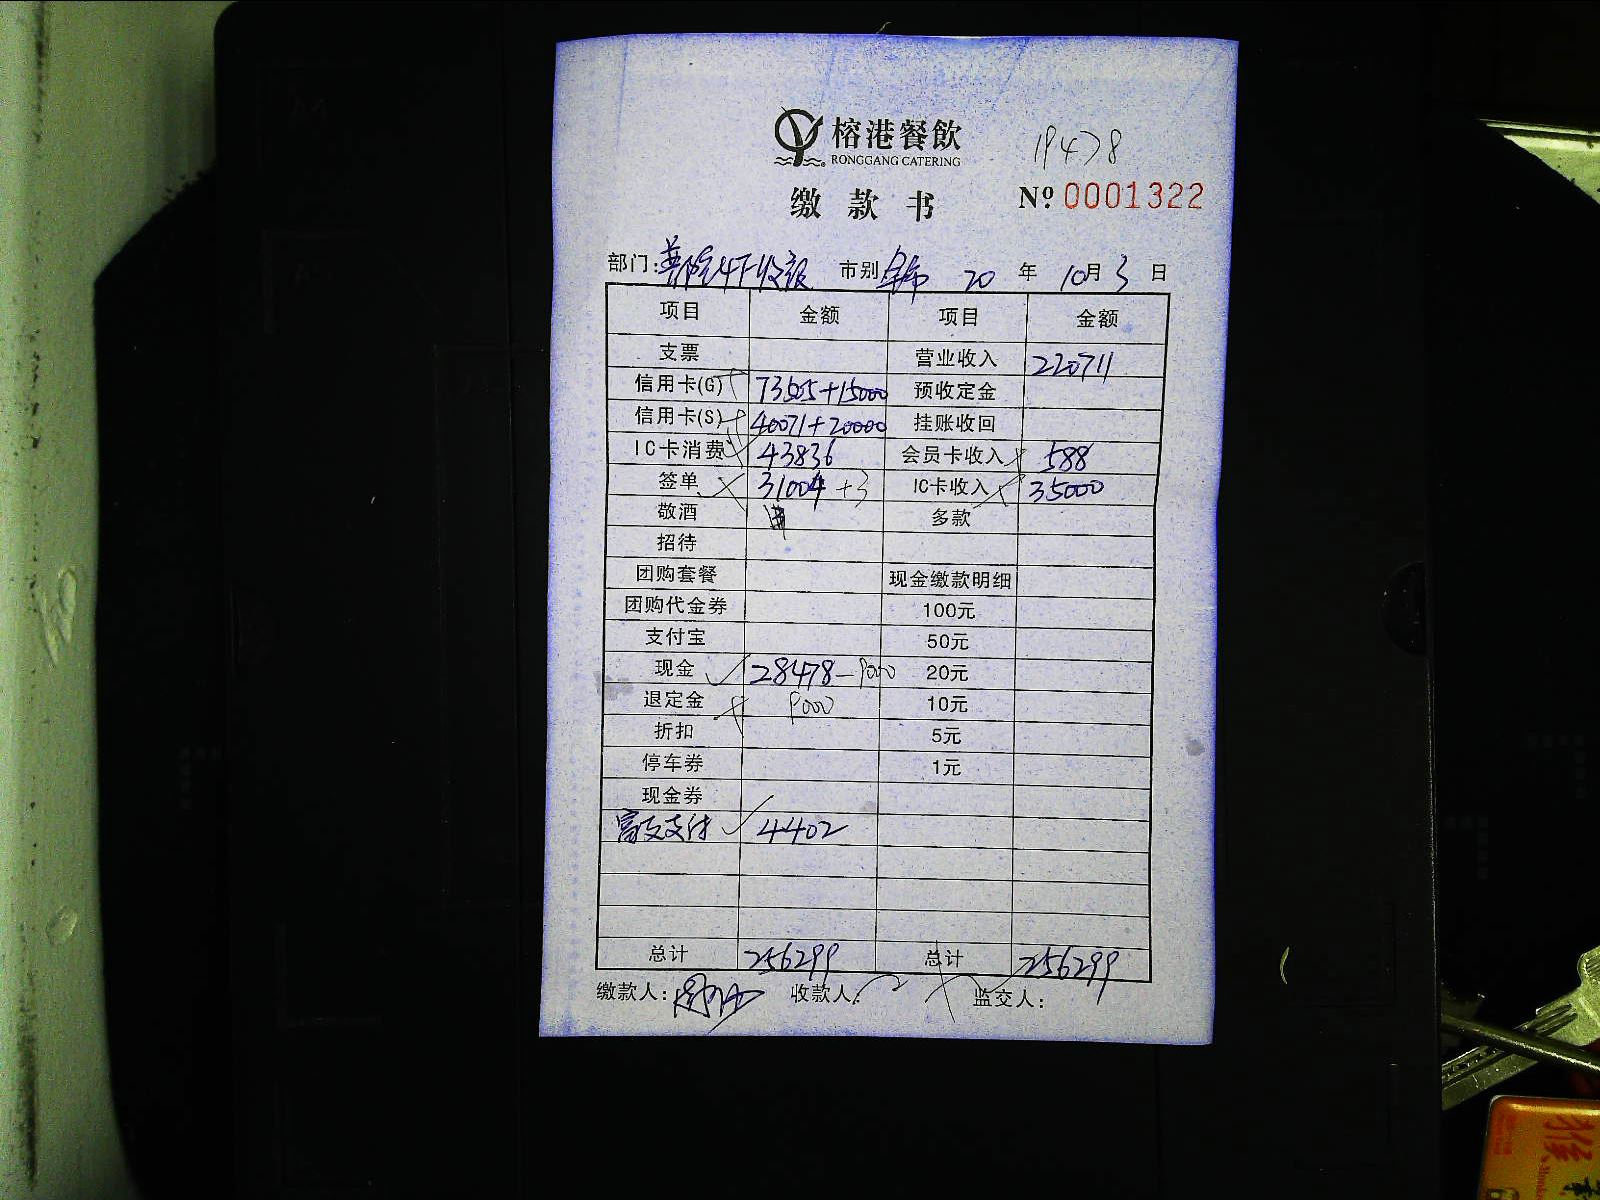 榕港餐飲
RONGGANG CATERING
19478
缴款书
Nº 0001322
部门: 市别 全市 20 年 10月3日
项目 金额 项目 金额
支票 营业收入 220711
信用卡(G) 73505+15000 预收定金
信用卡(S) 40071+20000 挂账收回
IC卡消费 43836 会员卡收入 588
签单 31004 +3 IC卡收入 35000
敬酒 多款
招待
团购套餐 现金缴款明细
团购代金券 100元
支付宝 50元
现金 28478-9000 20元
退定金 9000 10元
折扣 5元
停车券 1元
现金券
富友支付 4402
总计 256299 总计 256299
缴款人: 收款人: 监交人: